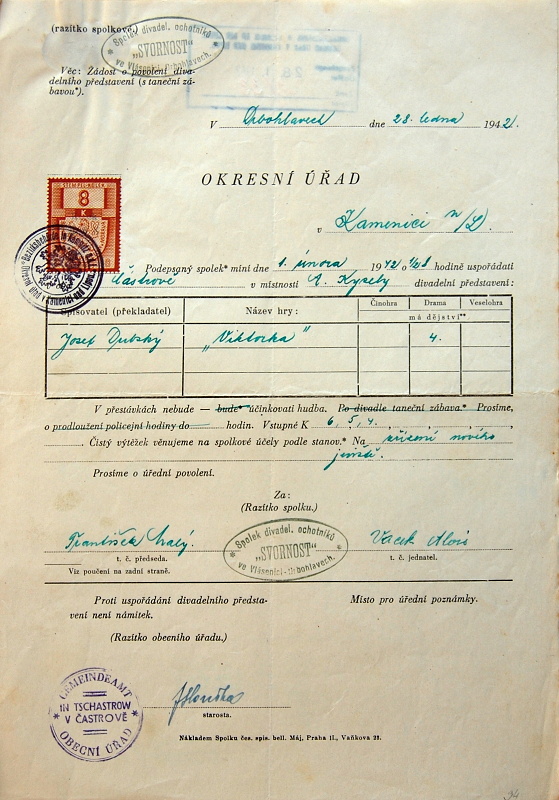 (razítko spolkové.)
Spolek divadel. ochotníků
„SVORNOST"
ve Vlásenici-Drbohlavech.
Věc: Žádost o povolení diva-
delního představení (s taneční zá-
bavou*).
V Drbohlavech dne 28. ledna 1942
OKRESNÍ ÚŘAD
v Kamenici n/L.
8
K
Podepsaný spolek míní dne 1. února 1942 o ½8 hodině uspořádati
Částrově v místnosti A. Kyseby divadelní představení:
Spisovatel (překladatel) Název hry: Činohra Drama Veselohra
má dějství**
Josef Dubský „Viktorka" 4.
V přestávkách nebude — bude* účinkovati hudba. Po divadle taneční zábava.* Prosíme,
o prodloužení policejní hodiny do hodin. Vstupné K 6, 5, 4,
Čistý výtěžek věnujeme na spolkové účely podle stanov.* Na zřízení nového
jeviště.
Prosíme o úřední povolení.
Za:
(Razítko spolku.)
František Malý. Vacek Alois
Spolek divadel. ochotníků
„SVORNOST"
ve Vlásenici-Drbohlavech.
t. č. předseda. t. č. jednatel.
Viz poučení na zadní straně.
Proti uspořádání divadelního představ-
ení není námitek.
Místo pro úřední poznámky.
(Razítko obecního úřadu.)
GEMEINDEAMT
IN TSCHASTROW
V ČASTROVĚ
OBECNÍ ÚŘAD
starosta.
Nákladem Spolku čes. spis. bell. Máj, Praha II., Vaňkova 29.
94